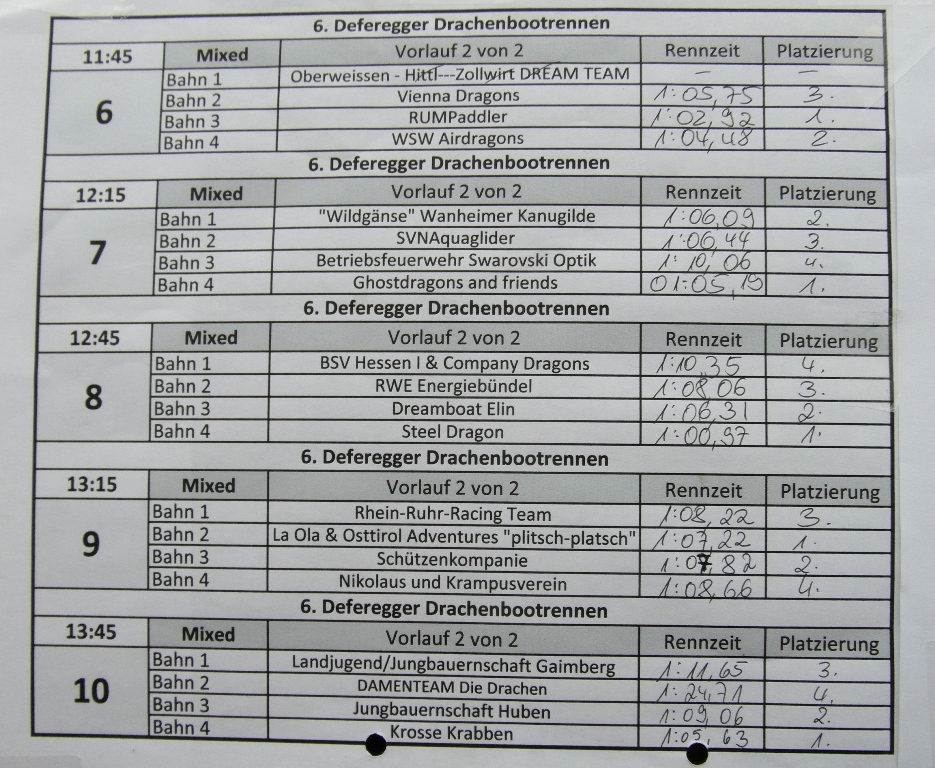 6. Deferegger Drachenbootrennen
11:45 Mixed Vorlauf 2 von 2 Rennzeit Platzierung
6
Bahn 1 Oberweissen - Hittl---Zollwirt DREAM TEAM – –
Bahn 2 Vienna Dragons 1:05,75 3.
Bahn 3 RUMPaddler 1:02,92 1.
Bahn 4 WSW Airdragons 1:04,48 2.
6. Deferegger Drachenbootrennen
12:15 Mixed Vorlauf 2 von 2 Rennzeit Platzierung
7
Bahn 1 "Wildgänse" Wanheimer Kanugilde 1:06,09 2.
Bahn 2 SVNAquaglider 1:06,44 3.
Bahn 3 Betriebsfeuerwehr Swarovski Optik 1:10,06 4.
Bahn 4 Ghostdragons and friends 01:05,19 1.
6. Deferegger Drachenbootrennen
12:45 Mixed Vorlauf 2 von 2 Rennzeit Platzierung
8
Bahn 1 BSV Hessen I & Company Dragons 1:10,35 4.
Bahn 2 RWE Energiebündel 1:08,06 3.
Bahn 3 Dreamboat Elin 1:06,31 2.
Bahn 4 Steel Dragon 1:00,97 1.
6. Deferegger Drachenbootrennen
13:15 Mixed Vorlauf 2 von 2 Rennzeit Platzierung
9
Bahn 1 Rhein-Ruhr-Racing Team 1:08,22 3.
Bahn 2 La Ola & Osttirol Adventures "plitsch-platsch" 1:07,22 1.
Bahn 3 Schützenkompanie 1:07,82 2.
Bahn 4 Nikolaus und Krampusverein 1:08,66 4.
6. Deferegger Drachenbootrennen
13:45 Mixed Vorlauf 2 von 2 Rennzeit Platzierung
10
Bahn 1 Landjugend/Jungbauernschaft Gaimberg 1:11,65 3.
Bahn 2 DAMENTEAM Die Drachen 1:24,71 4.
Bahn 3 Jungbauernschaft Huben 1:09,06 2.
Bahn 4 Krosse Krabben 1:05,63 1.